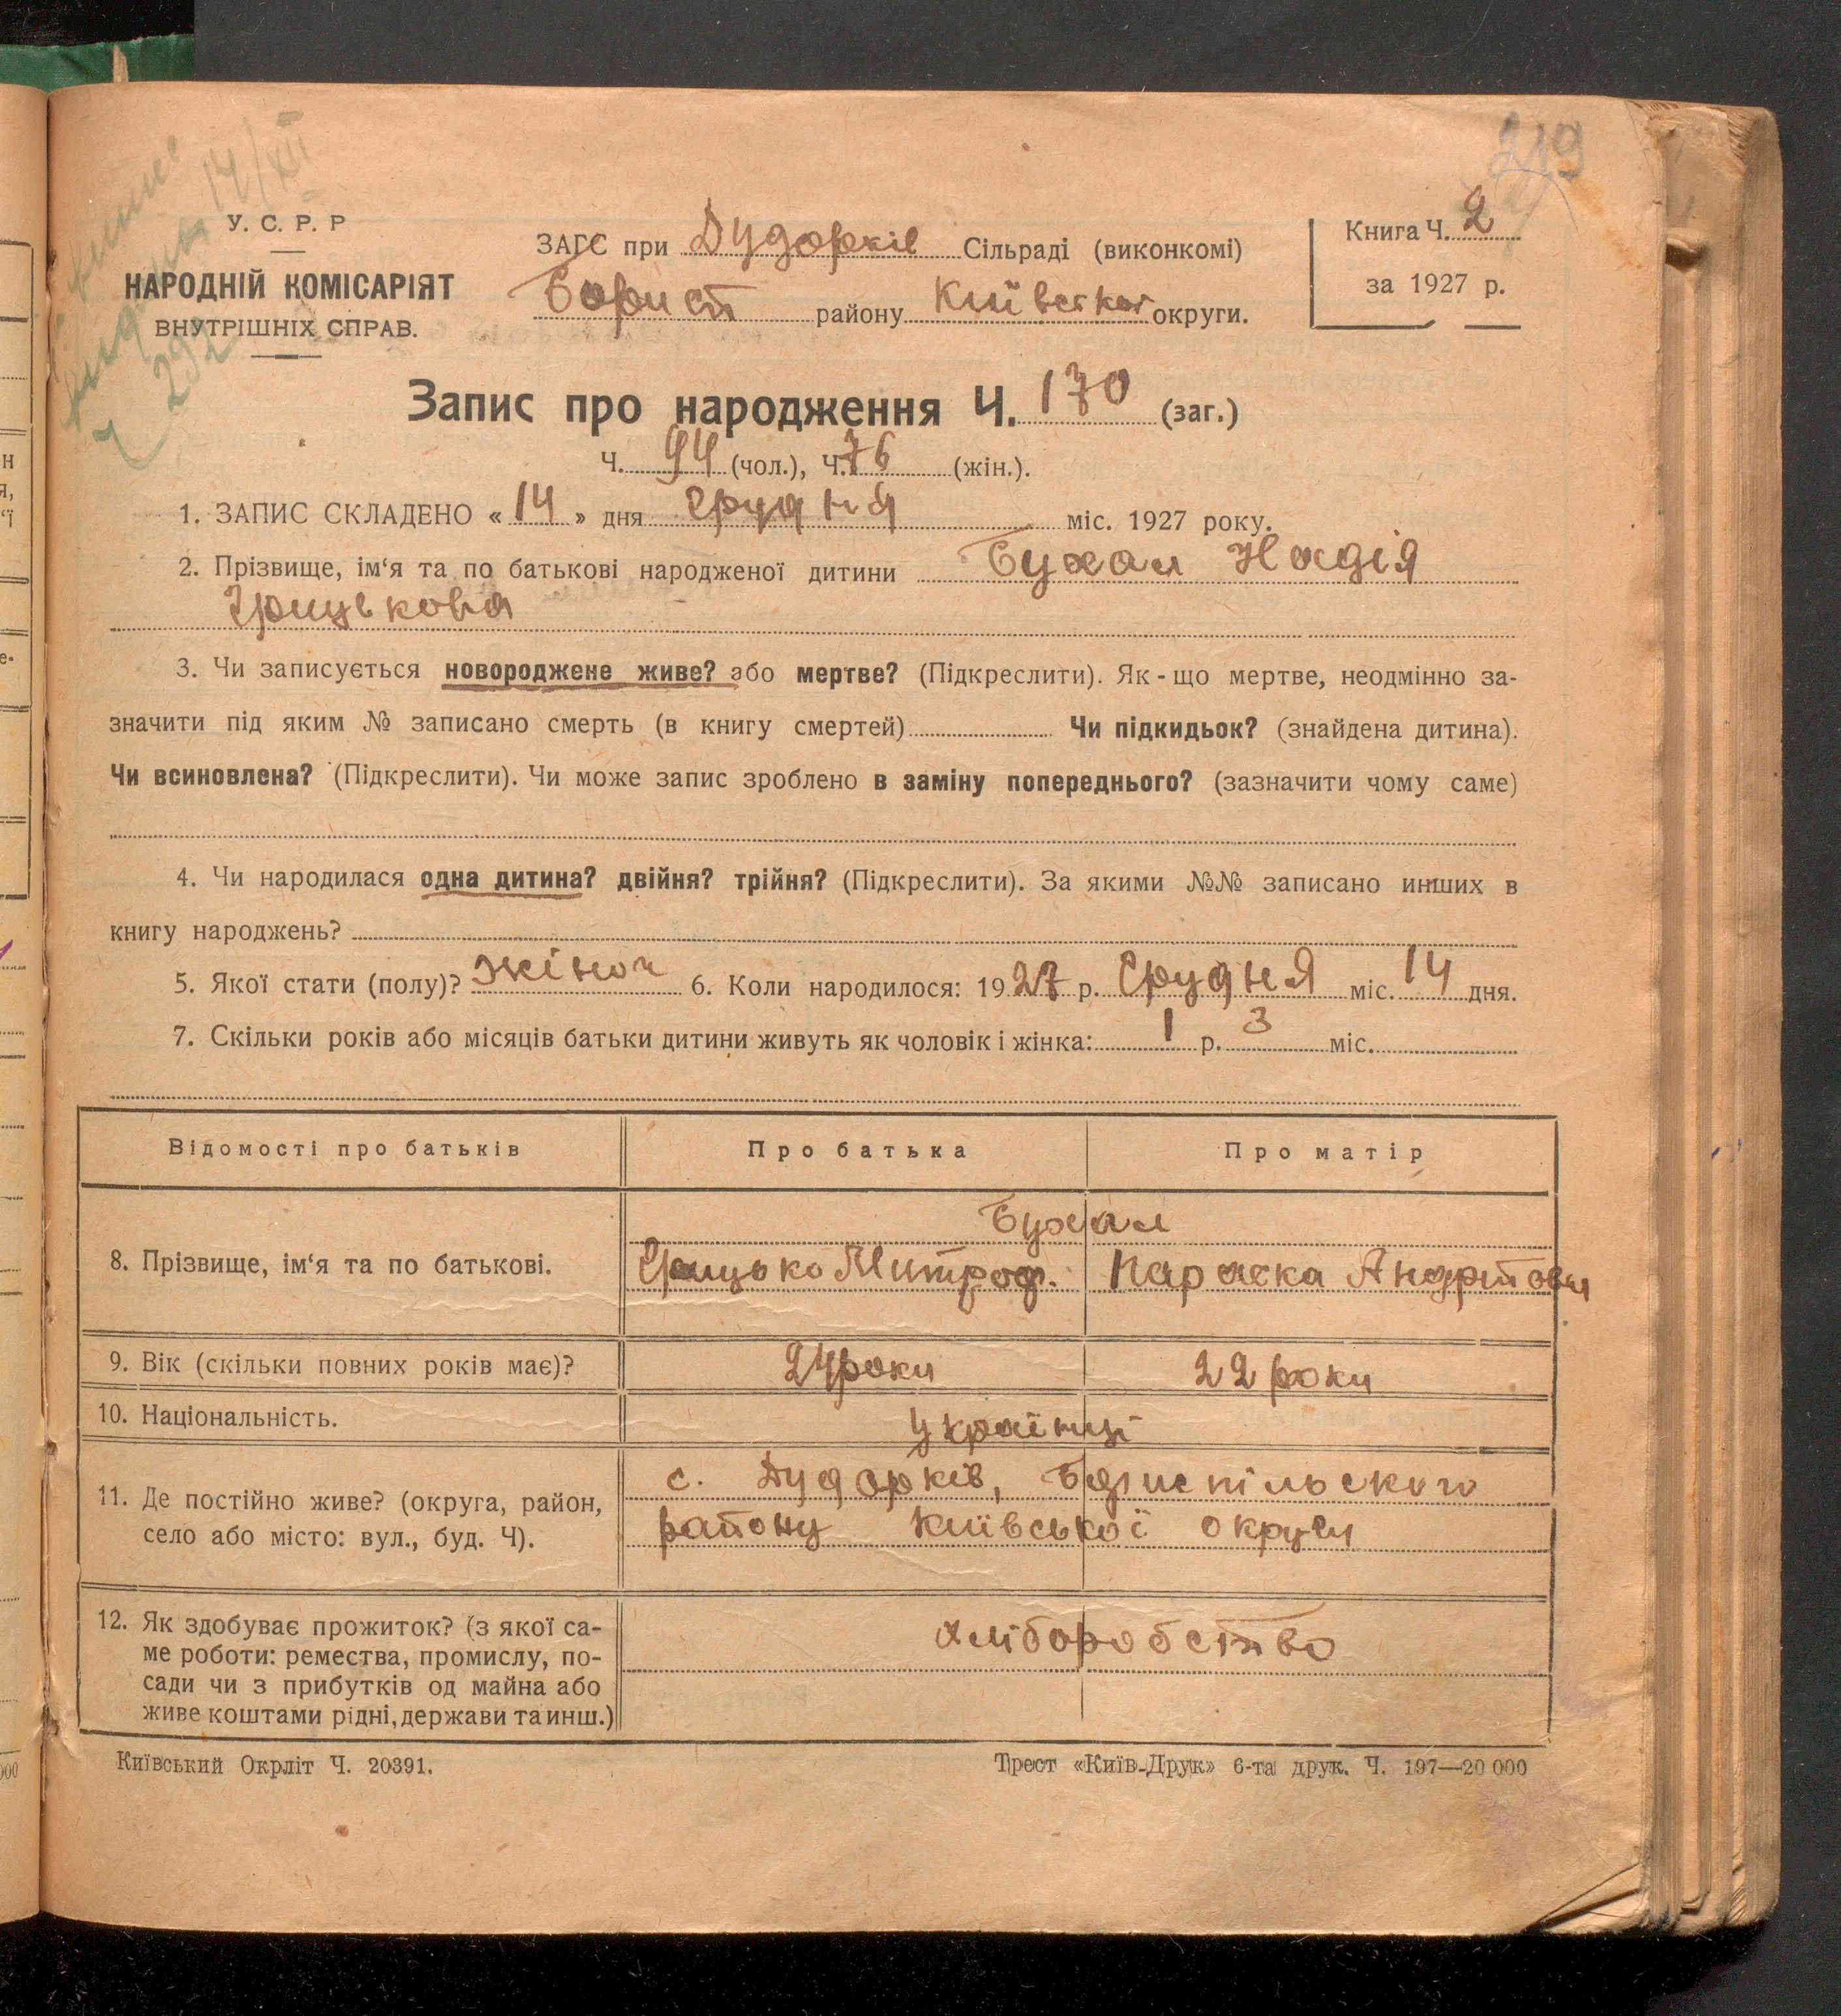 219
У. С. Р. Р
НАРОДНІЙ КОМІСАРІЯТ
ВНУТРІШНІХ СПРАВ.
14/XII
292
ЗАГС при Дударків Сільраді (виконкомі)
Борисп району Київської округи.
Книга Ч. 2
за 1927 р.
Запис про народження Ч. 170 (заг.)
Ч. 94 (чол.), Ч. 76 (жін.).
1. ЗАПИС СКЛАДЕНО « 14 » дня грудня міс. 1927 року.
2. Прізвище, ім‘я та по батькові народженої дитини Бухал Надія
Грицькова
3. Чи записується новороджене живе? або мертве? (Підкреслити). Як - що мертве, неодмінно за-
значити під яким № записано смерть (в книгу смертей) Чи підкидьок? (знайдена дитина).
Чи всиновлена? (Підкреслити). Чи може запис зроблено в заміну попереднього? (зазначити чому саме)
4. Чи народилася одна дитина? двійня? трійня? (Підкреслити). За якими №№ записано инших в
книгу народжень?
5. Якої стати (полу)? жіноч 6. Коли народилося: 1927 р. Грудня міс. 14 дня.
7. Скільки років або місяців батьки дитини живуть як чоловік і жінка: 1 р. 3 міс.
Відомості про батьків Про батька Про матір
Бухал
8. Прізвище, ім‘я та по батькові. Грицько Митроф. Параска
9. Вік (скільки повних років має)? 24 роки 22 роки
10. Національність. Українці
11. Де постійно живе? (округа, район, с. Дударків, Бориспільського
село або місто: вул., буд. Ч). району Київської округи
12. Як здобуває прожиток? (з якої са- хліборобство
ме роботи: ремества, промислу, по-
сади чи з прибутків од майна або
живе коштами рідні, держави та инш.)
Київський Окрліт Ч. 20391. Трест «Київ-Друк» 6-та друк. Ч. 197—20 000